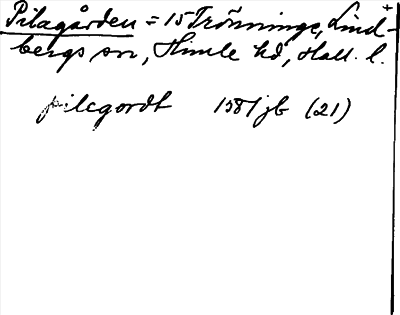 Pilagården = 15 Trönninge, Lind-
bergs sn, Himle hd, Hall. l.
pilegordt 1581 jb (21)